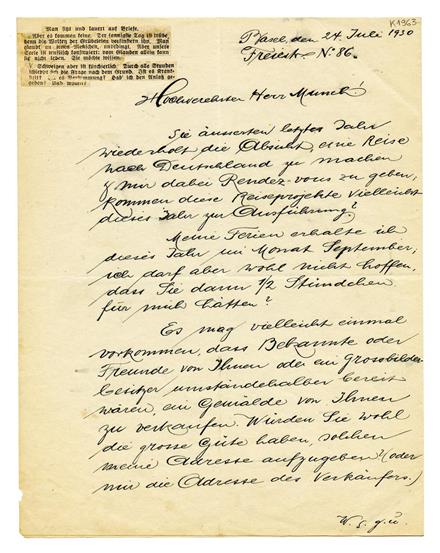 Man sitzt und lauert auf Briefe.
Aber es kommen keine. Der sonnigste Tag ist trübe,
denn die Wolken der Grübeleien verfinstern ihn. Man
glaubt an einen Menschen, unbedingt. Aber unsere
Seele ist teuflisch konstruiert: vom Glauben allein kann
sie nicht leben. Sie möchte wissen.
Schweigen aber ist fürchterlich. Durch alle Stunden
schleppt sich die Frage nach dem Grund. Ist es Krank-
heit? Ist es Verstimmung? Hab' ich den Anlaß ge-
geben? Und womit?
K 1963
Basel, den 24. Juli 1930
Freiest. No 86.
Hochverehrter Herr Munch!
Sie äusserten letztes Jahr
wiederholt die Absicht, eine Reise
nach Deutschland zu machen
& mir dabei Rendez-vous zu geben;
kommen diese Reiseprojekte vielleicht
dieses Jahr zur Ausführung?
Meine Ferien erhalte ich
dieses Jahr im Monat September;
ich darf aber wohl nicht hoffen,
dass Sie dann 1/2 Stündchen
für mich hätten?
Es mag vielleicht einmal
vorkommen, dass Bekannte oder
Freunde von Ihnen oder ein Grossbilder-
besitzer umständehalber bereit
wären, ein Gemälde von Ihnen
zu verkaufen. Würden Sie wohl
die grosse Güte haben, solchen
meine Adresse aufzugeben? (oder
mir die Adresse des Verkäufers.)
W. s. g. u.